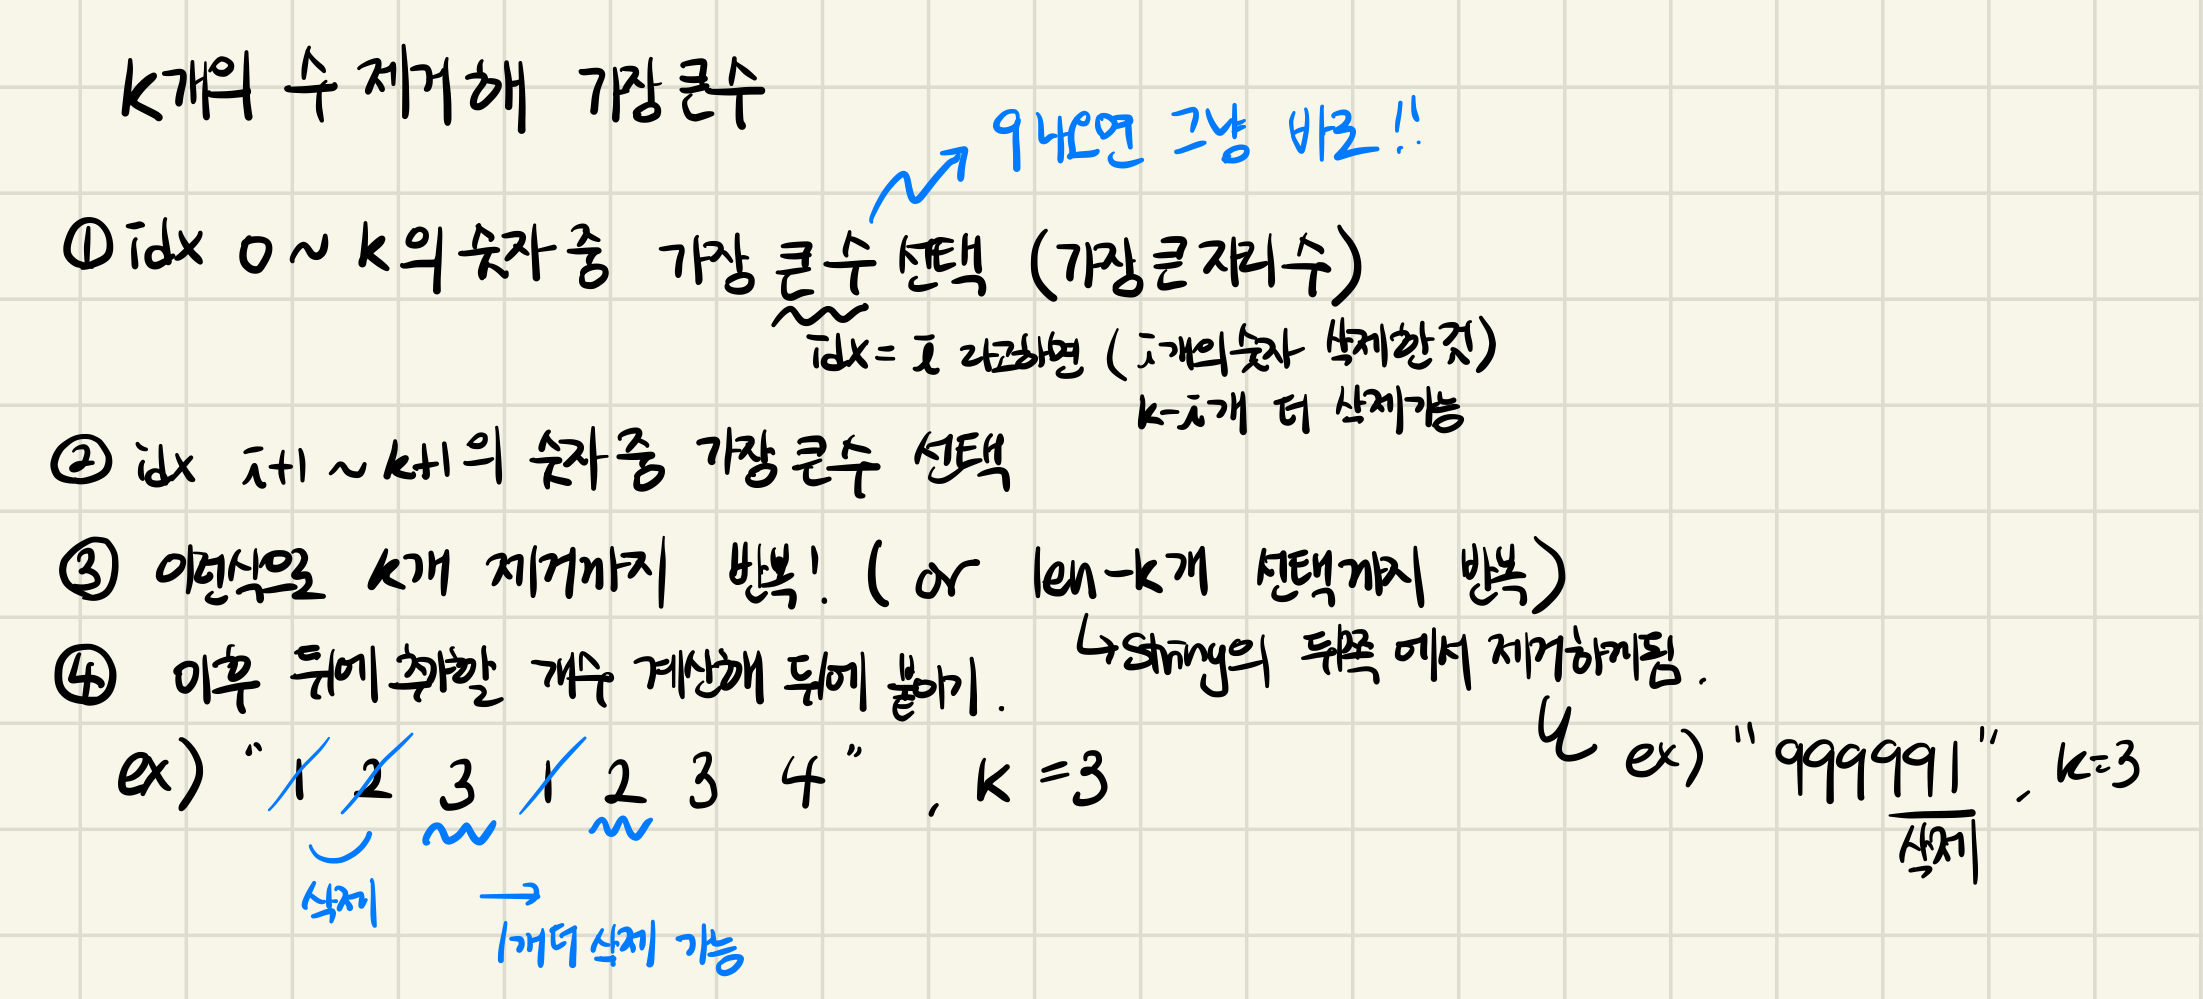 k개의 수 제거해 가장 큰수
9나오면 그냥 바로!!
① idx 0 ~ k의 숫자 중 가장 큰 수 선택 (가장 큰 자리 수)
idx = i 라고하면 (i개의 숫자 삭제한 것)
k-i개 더 삭제가능
② idx i+1 ~ k+1의 숫자 중 가장 큰 수 선택
③ 이런식으로 k개 제거까지 반복! (or len-k개 선택까지 반복)
↳ string의 뒤쪽에서 제거하게됨.
④ 이후 뒤에 추가할 개수 계산해 뒤에 붙이기.
ex) "1 2 3 1 2 3 4", k=3
ex) "999991", k=3
삭제
삭제
→
1개더 삭제 가능